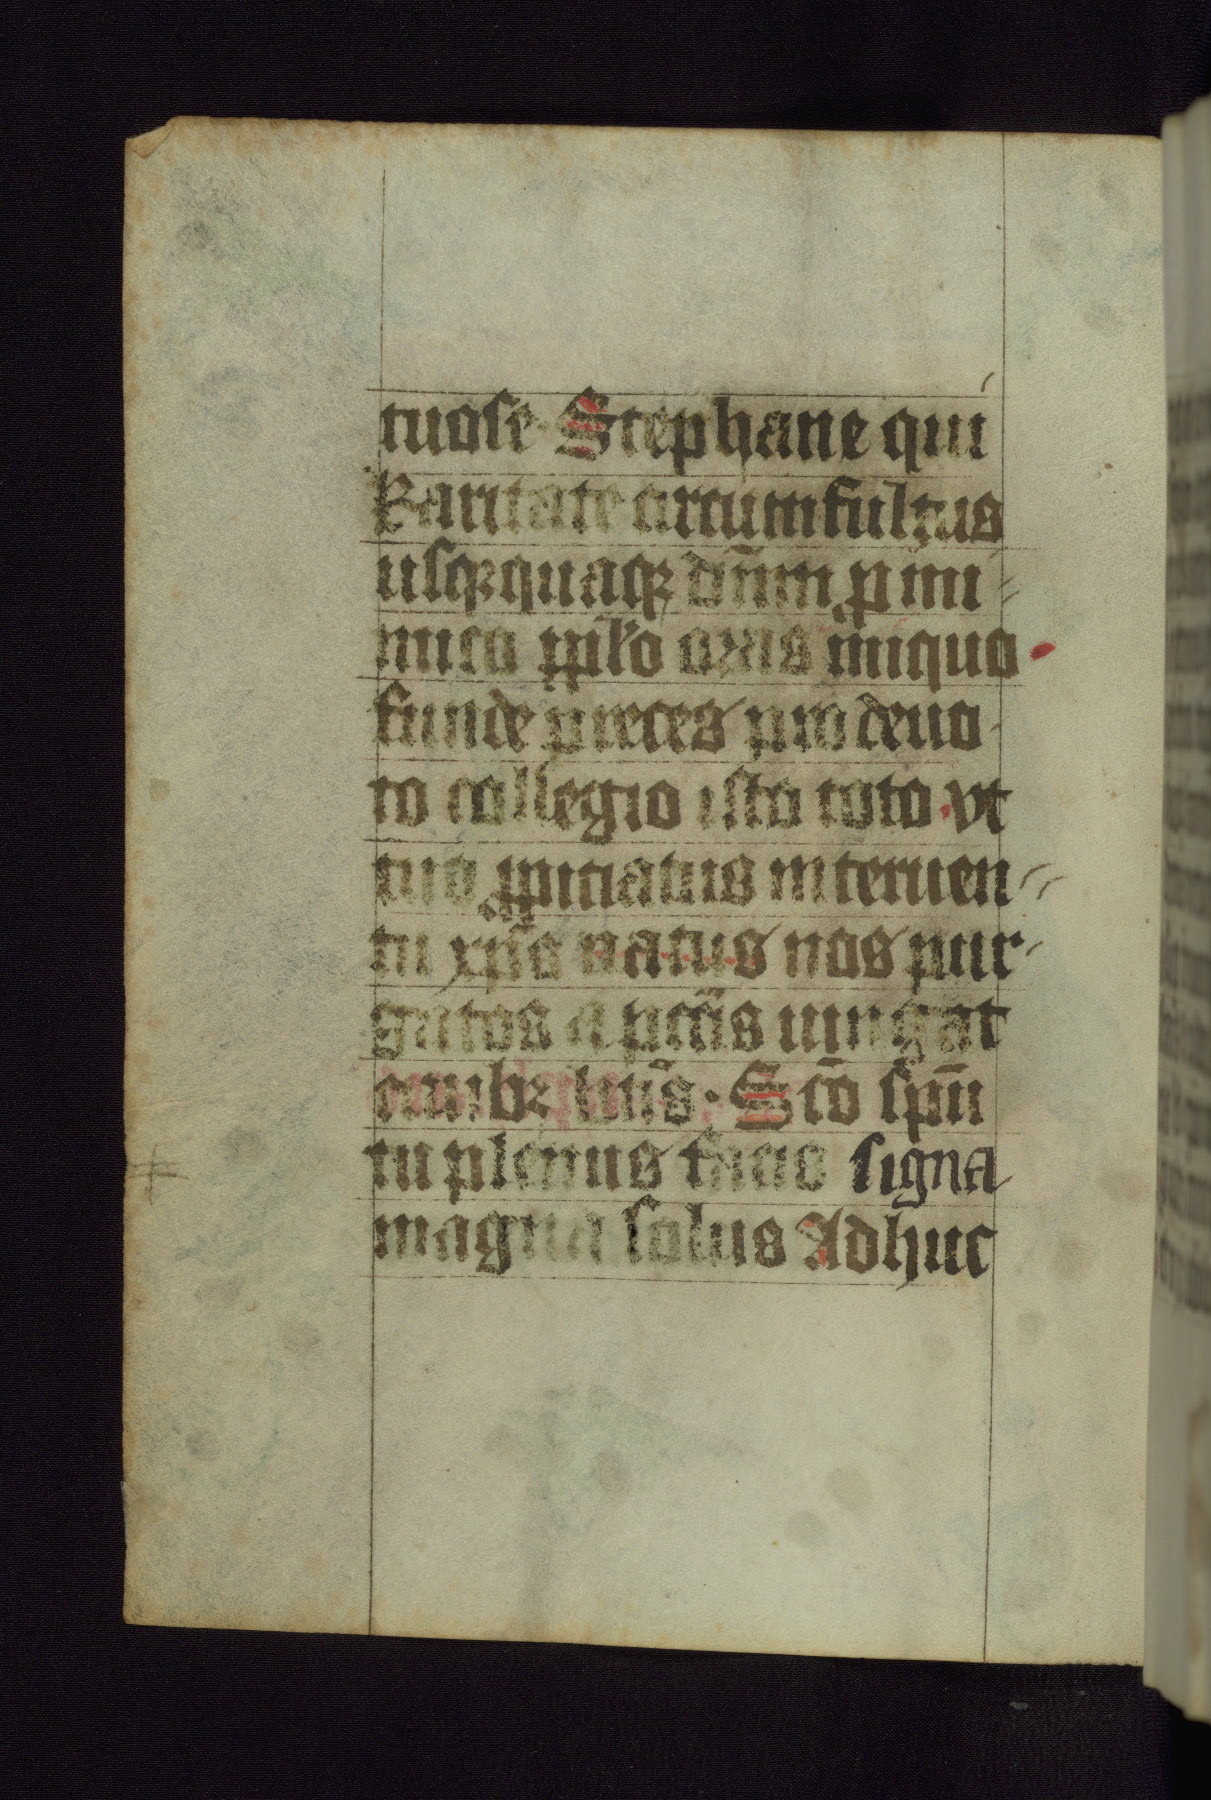 tuose Stephane qui
karitate circumfultus
usqꝫquaqꝫ dn̄m p ini
mico pplo oras iniquo
funde preces pro deuo
to collegio isto toto vt
tuo ppiciatus interuen
tu xp̄s natus nos pur
gatos a pctīs iungat
ciuibꝫ
Scō spū
tu plenus facio signa
magna solus Adhuc